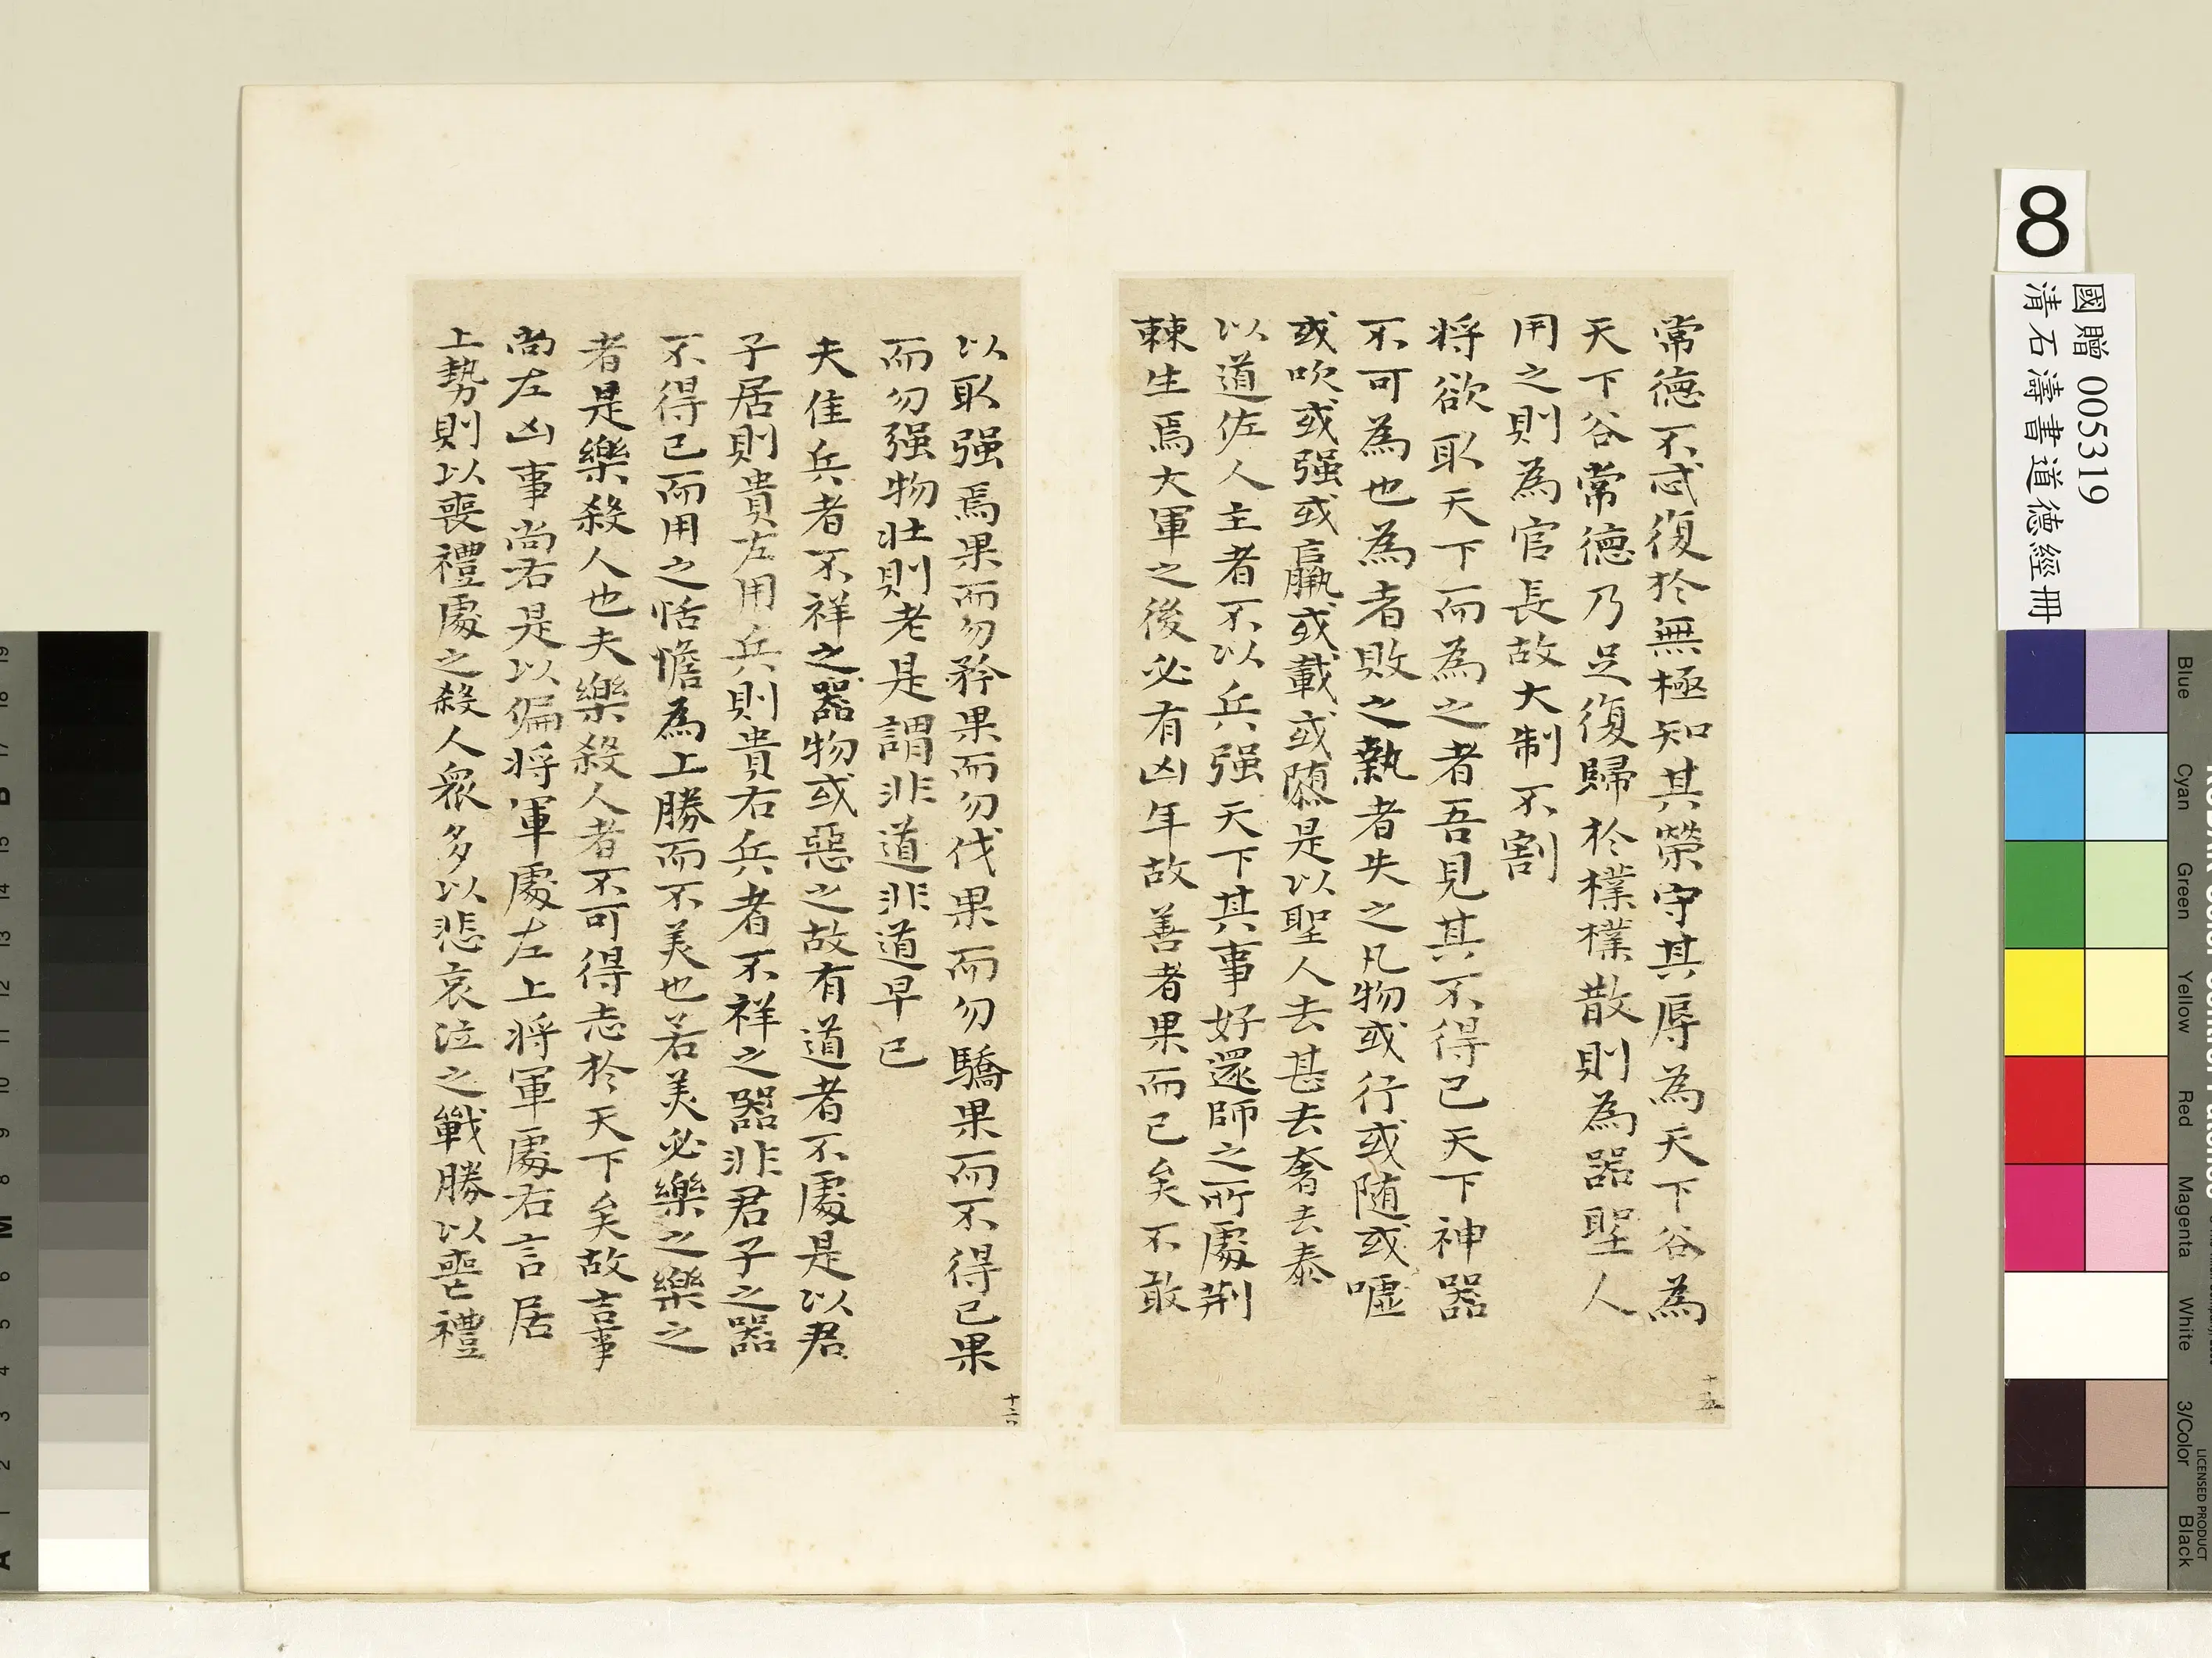 常德不忒復於無極知其榮守其辱為天下谷為
天下谷常德乃足復歸於樸樸散則為器聖人
用之則為官長故大制不割
将欲取天下而為之者吾見其不得已天下神器
不可為也為者敗之執者失之凡物或行或随或嘘
或吹或强或羸或載或隳是以聖人去甚去奢去泰
以道佐人主者不以兵强天下其事好還師之所處荆
棘生焉大軍之後必有凶年故善者果而已矣不敢
十五
以取强焉果而勿矜果而勿伐果而勿驕果而不得已果
而勿强物壮則老是謂非道非道早已
夫佳兵者不祥之器物或惡之故有道者不處是以君
子居則貴左用兵則貴右兵者不祥之器非君子之器
不得已而用之恬憺為上勝而不美也若美必樂之樂之
者是樂殺人也夫樂殺人者不可得志於天下矣故吉事
尚左凶事尚右是以偏将軍處左上将軍處右言居
上勢則以喪禮處之殺人衆多以悲哀泣之戰勝以喪禮
十六
8
國贈 005319
清石濤書道德經冊
Blue
Cyan
Green
Yellow
Red
Magenta
White
3/Color
Black
LICENSED PRODUCT
A 1 2 3 4 5 6 M 8 9 10 11 12 13 14 15 B 17 18 19